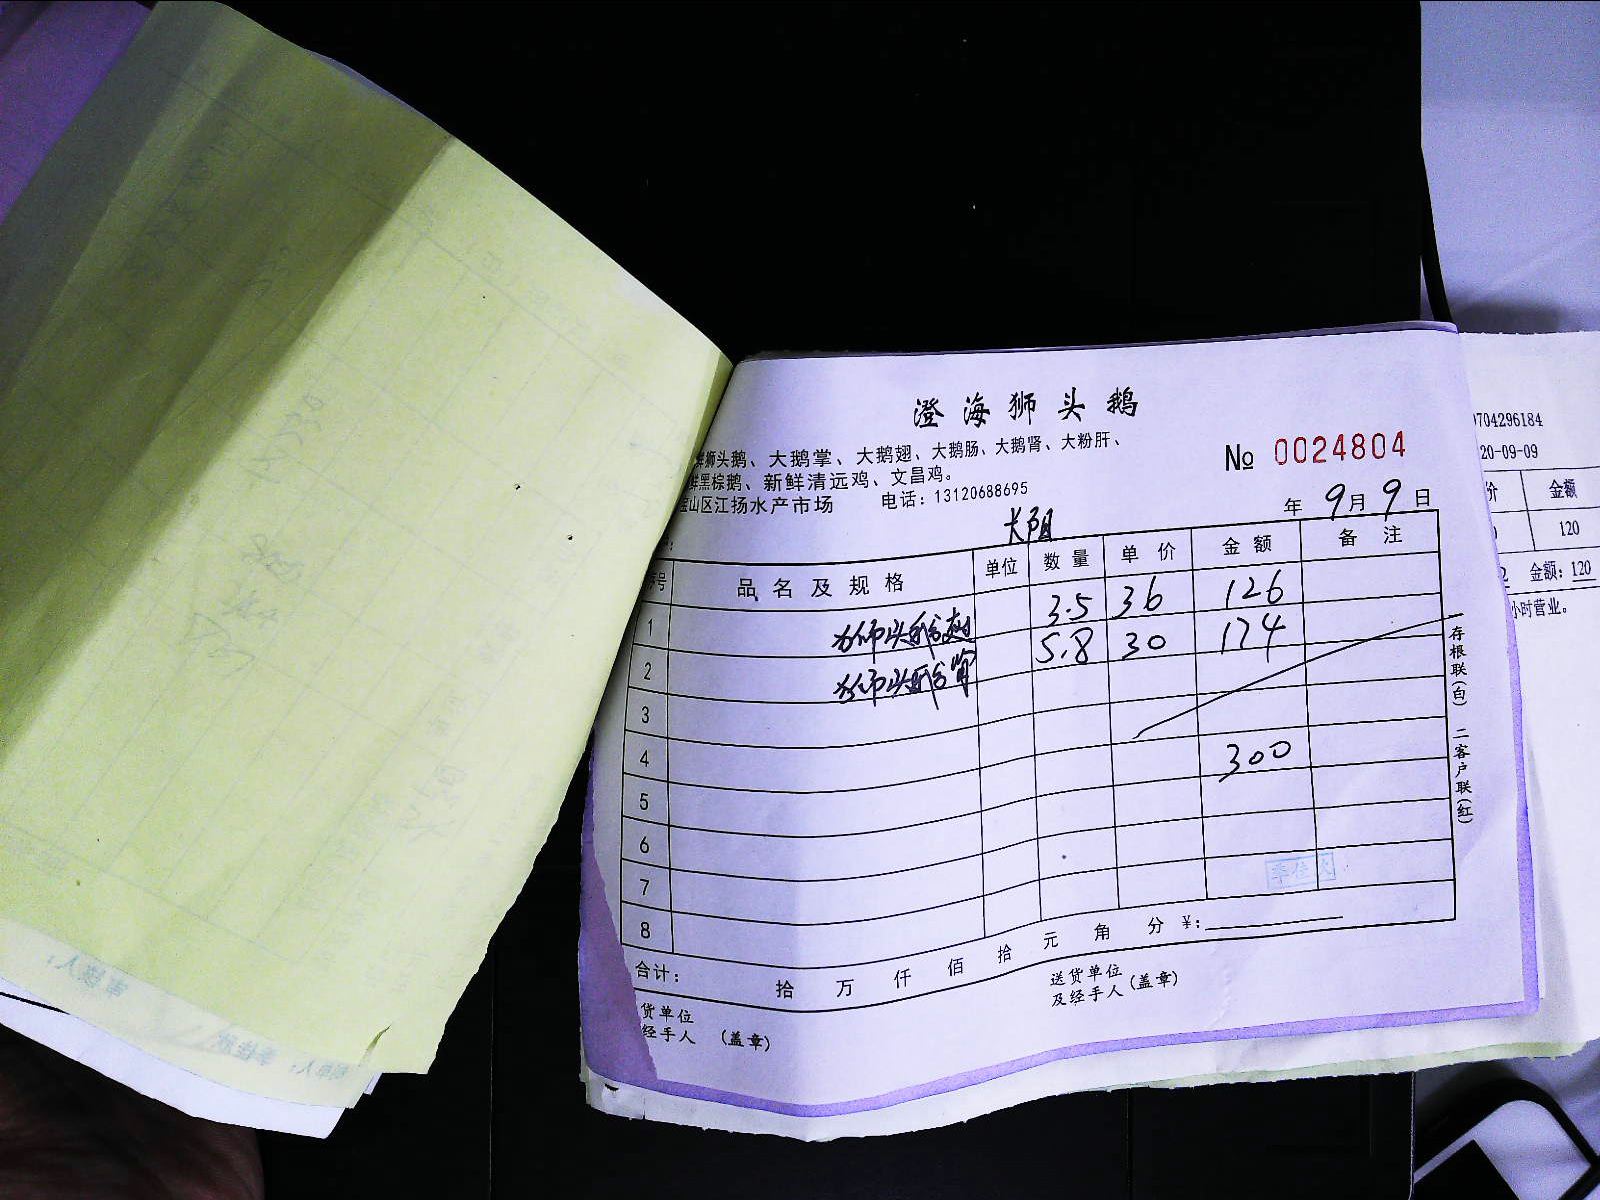 澄海狮头鹅
狮头鹅、大鹅掌、大鹅翅、大鹅肠、大鹅肾、大粉肝、
鲜黑棕鹅、新鲜清远鸡、文昌鸡。
宝山区江扬水产市场 电话：13120688695
№ 0024804
长阳
年 9月 9日
序号 品名及规格 单位 数量 单价 金额 备注
1 狮头鹅翅 3.5 36 126
2 狮头鹅肾 5.8 30 174
3
4 300
5
6
7
8
合计： 拾 万 仟 佰 拾 元 角 分 ¥：
货单位
经手人 （盖章）
送货单位
及经手人（盖章）
存根联(白) 二客户联(红)
0704296184
20-09-09
价 金额
120
金额：120
小时营业。